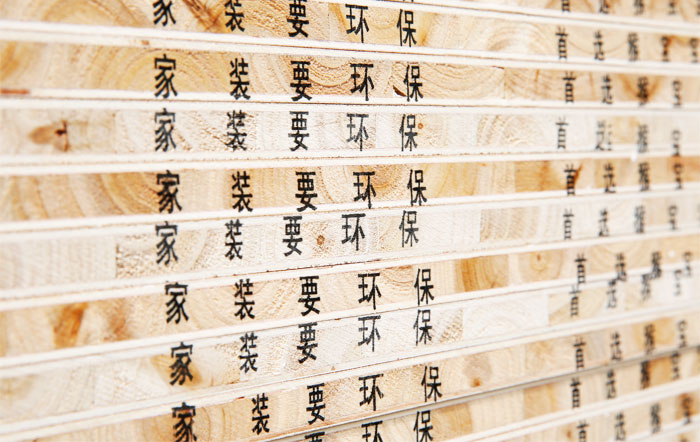 家装要环保 首选
家装要环保 首选
家装要环保 首选
家装要环保 首选
家装要环保 首选
家装要环保 首选
家装要环保 首选
家装要环保 首选
要环保 首选